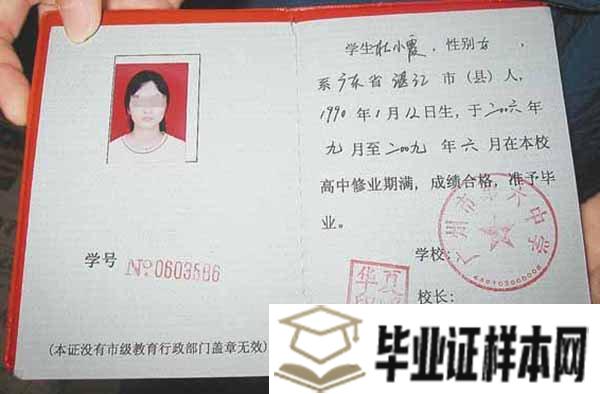 学号 №0603586
(本证没有市级教育行政部门盖章无效)
学生杜小霞，性别女，
系广东省湛江市（县）人，
1990年1月12日生，于二〇〇六年
九月至二〇〇九年六月在本校
高中修业期满，成绩合格，准予毕
业。
学校：
校长：
广州市第六中学
毕业证样本网